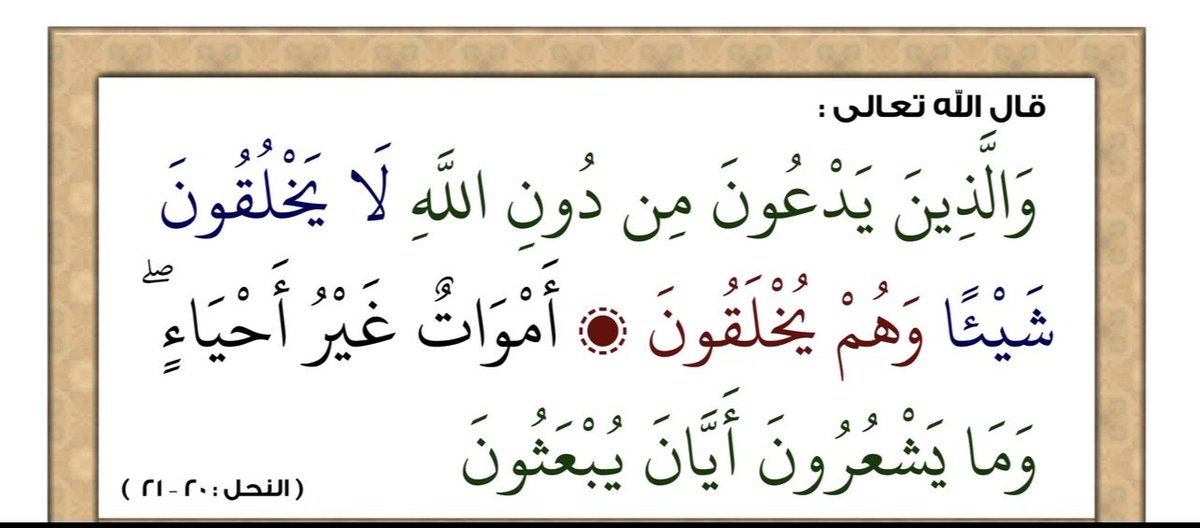 قال الله تعالى :
وَالَّذِينَ يَدْعُونَ مِن دُونِ اللَّهِ لَا يَخْلُقُونَ
شَيْئًا وَهُمْ يُخْلَقُونَ ۝ أَمْوَاتٌ غَيْرُ أَحْيَاءٍ ۖ
وَمَا يَشْعُرُونَ أَيَّانَ يُبْعَثُونَ
( النحل : ٢٠ - ٢١ )